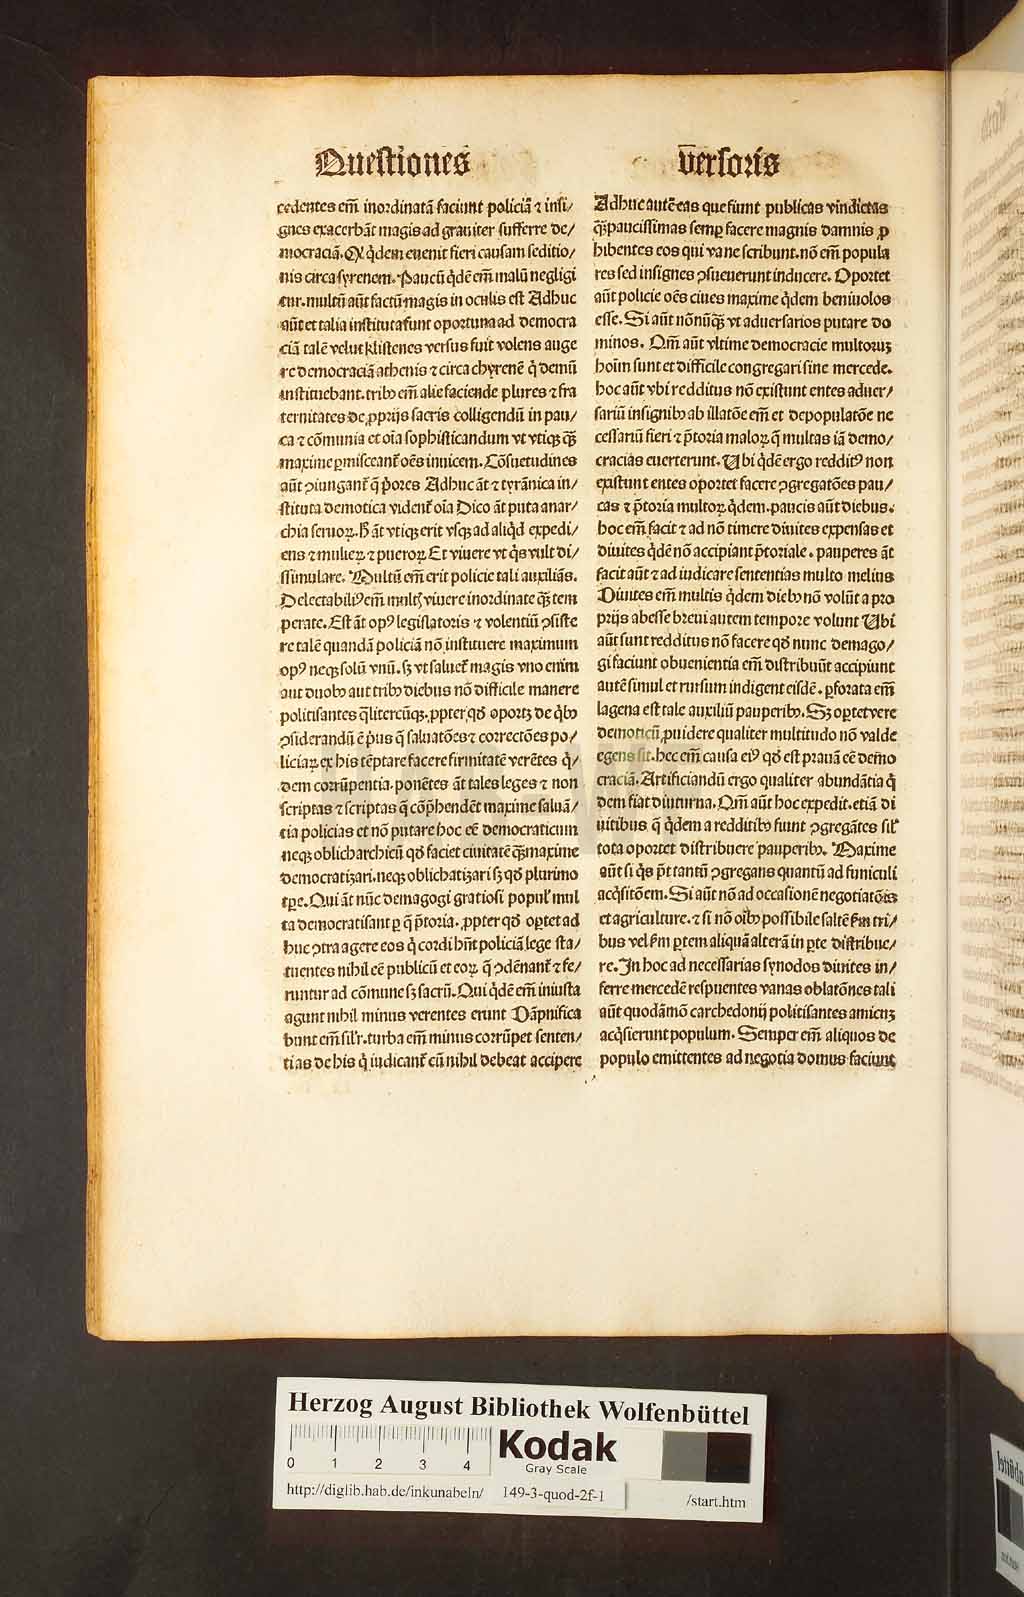 Questiones
v̄ersoris
cedentes em̄ inordinatā faciunt policiā ⁊ insi/
gnes exacerbāt magis ad grauiter sufferre de/
mocraciā. Qḋ q̇dem euenit fieri causam seditio/
nis circa syrenem. Paucū q̇dē em̄ malū negligi
tur. multū aūt factū magis in oculis est Adhuc
aūt et talia instituta sunt oportuna ad democra
ciā talē velut klistenes versus fuit volens auge
re democraciā athenis ⁊ circa chyrenē q̇ demū
instituebant. tribꝰ em̄ alie faciende plures ⁊ fra
ternitates de ꝓprijs sacris colligendū in pau/
ca ⁊ cōmunia et oīa sophisticandum vt vtiqꝫ qꝫ̄
maxime ꝑmisceant̄ oēs inuicem. Cōsuetudines
aūt ꝯiungant̄ q̄ p̄ores Adhuc āt ⁊ tyrānica in/
stituta demotica vident̄ oīa Dico āt puta anar/
chia seruoꝝ. H̄ āt vtiqꝫ erit vsqꝫ ad aliqḋ expedi/
ens ⁊ mulieꝝ ⁊ pueroꝝ Et viuere vt q̇s vult di/
ssimulare. Multū em̄ erit policie tali auxiliās.
Delectabiliꝰ em̄ multꝫ viuere inordinate qꝫ̄ tem
perate. Est āt opꝰ legislatoris ⁊ volentiū ꝯsiste
re talē quandā policiā nō instituere maximum
opꝰ neqꝫ solū vnū. sꝫ vt saluet̄ magis vno enim
aut duobꝰ aut tribꝰ diebus nō difficile manere
politisantes q̄litercūqꝫ. ꝓpter qḋ oportꝫ de q̇bꝰ
ꝯsiderandū ē p̄us q̄ saluatōes ⁊ correctōes po/
liciaꝝ ex his tēptare facere firmitatē verētes q̇/
dem corrūpentia. ponētes āt tales leges ⁊ non
scriptas ⁊ scriptas q̄ cōp̄hendēt maxime saluā/
tia policias et nō putare hoc eē democraticum
neqꝫ oblicharchicū qḋ faciet ciuitatē qꝫ̄ maxime
democratizari. neqꝫ oblichatizari sꝫ qḋ plurimo
tꝑe. Qui āt nūc demagogi gratiosi popul' mul
ta democratisant ꝑ q̄ p̄toria. ꝓpter qḋ oꝑtet ad
huc ꝯtra agere eos q̇ cordi hn̄t policiā lege sta/
tuentes nihil eē publicū et eoꝝ q̄ ꝯdēnant̄ ⁊ fe/
runtur ad cōmune sꝫ sacrū. Qui q̇dē em̄ iniusta
agunt nihil minus verentes erunt Dāpnifica
bunt em̄ sil'r. turba em̄ minus corrūpet senten/
tias de his q̇ iudicant̄ cū nihil debeat accipere
Adhuc autē eas que fiunt publicas vindictas
qꝫ̄ paucissimas semꝑ facere magnis damnis ꝓ
hibentes eos qui vane scribunt. nō em̄ popula
res sed insignes ꝯsueuerunt inducere. Oportet
aūt policie oēs ciues maxime q̇dem beniuolos
esse. Si aūt nōnūqꝫ̄ vt aduersarios putare do
minos. Qm̄ aūt vltime democracie multoruꝫ
hoīm sunt et difficile congregari sine mercede.
hoc aūt vbi redditus nō existunt entes aduer/
sariū insignibꝰ ab illatōe em̄ et depopulatōe ne
cessariū fieri ⁊ p̄toria maloꝝ q̄ multas iā demo/
cracias euerterunt. Ubi q̇dē ergo redditꝰ non
existunt entes oportet facere ꝯgregatōes pau/
cas ⁊ p̄toria multoꝝ q̇dem. paucis aūt diebus.
hoc em̄ facit ⁊ ad nō timere diuites expensas et
diuites q̇dē nō accipiant p̄toriale. pauperes āt
facit aūt ⁊ ad iudicare sententias multo melius
Diuites em̄ multis q̇dem diebꝰ nō volūt a pro
prijs abesse breui autem tempore volunt Ubi
aūt sunt redditus nō facere qḋ nunc demago/
gi faciunt obuenientia em̄ distribuūt accipiunt
autē simul et rursum indigent eisdē. ꝑforata em̄
lagena est tale auxiliū pauperibꝰ. Sꝫ oꝑtet vere
demoticū ꝓuidere qualiter multitudo nō valde
egens sit. hec em̄ causa eiꝰ qḋ est prauā eē demo
craciā. Artificiandū ergo qualiter abundātia q̇
dem fiat diuturna. Qm̄ aūt hoc expedit. etiā di
uitibus q̄ q̇dem a redditibꝰ fiunt ꝯgregātes sil'
tota oportet distribuere pauperibꝰ. Maxime
aūt si q̇s pt̄ tantū ꝯgregans quantū ad funiculi
acq̇sitōem. Si aūt nō ad occasionē negotiatōis
et agriculture. ⁊ si nō oībꝰ possibile saltē ẜm tri/
bus vel ẜm ꝑtem aliquā alterā in ꝑte distribue/
re. In hoc ad necessarias synodos diuites in/
ferre mercedē respuentes vanas oblatōnes tali
aūt quodāmō carchedonij politisantes amicuꝫ
acq̇sierunt populum. Semper em̄ aliquos de
populo emittentes ad negotia domus faciunt
Herzog August Bibliothek Wolfenbüttel
0 1 2 3 4
Kodak
Gray Scale
http://diglib.hab.de/inkunabeln/ 149-3-quod-2f-1 /start.htm